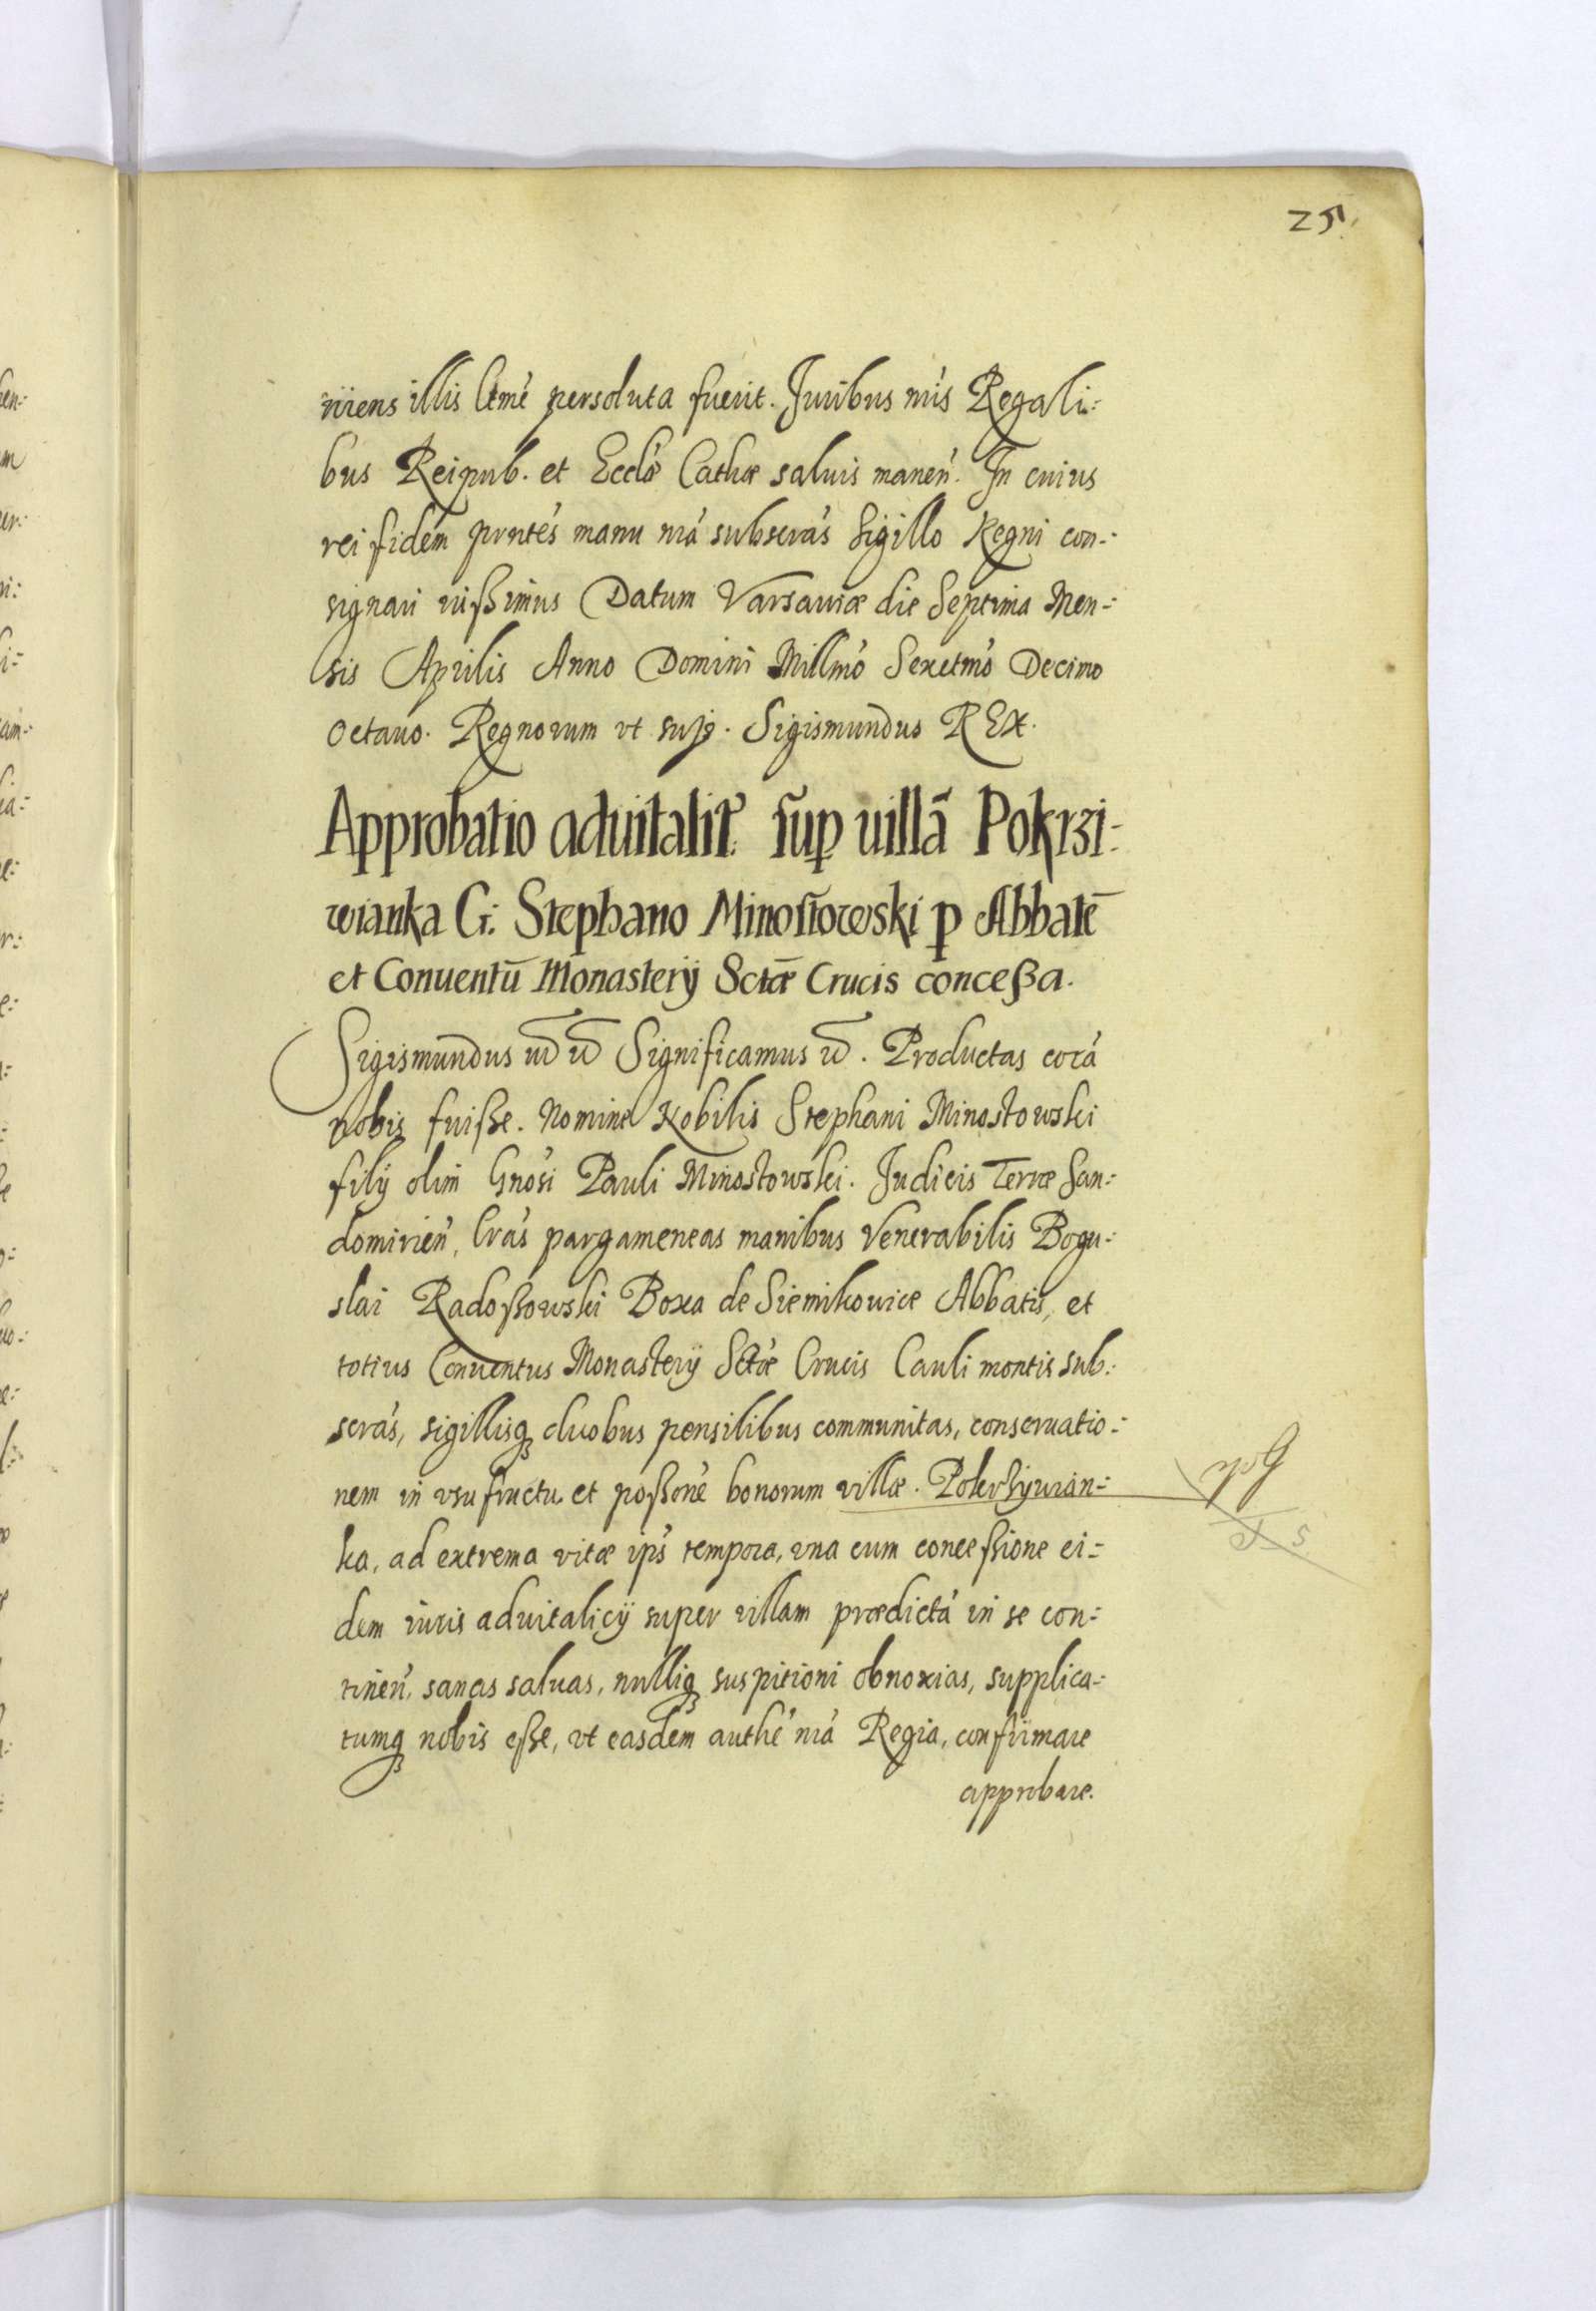 25
niens illis ltmè persoluta fuerit. Juribus nris Regali:
bus Reipub. et Ecclæ Cathæ saluis manen. In cuius
rei fidem pntes manu nrá subscrás Sigillo Regni con:
signari iußimus Datum Varsauiæ die Septima Men:
sis Aprilis Anno Domini Millmo Sexctmo Decimo
Octauo. Regnorum vt sup. Sigismundus REX.
Approbatio aduitalit: sup uillā Pokrzi:
wianka G: Stephano Minostowski p Abbatē
et Conuentū Monasterÿ Sctæ Crucis conceßa.
Sigismundus Significamus. Productas corá
nobis fuiße. Nomine Nobilis Stephani Minostowski
filÿ olim Gnosi Pauli Minostowski. Judicis Terræ San:
domirien, lrás pargameneas manibus Venerabilis Bogu:
slai Radoßowski Boxa de Siemikowice Abbatis, et
totius Conuentus Monasterÿ Sctæ Crucis Calui montis sub:
scrás, sigillisq duobus pensilibus communitas, conseruatio:
nem in vsufructu et poßone bonorum villæ. Pokrsÿwian:
ka, ad extrema vitæ ips tempora, vna cum conceßione ei:
dem iuris aduitalicÿ super villam prædictá in se con:
tinen, sanas saluas, nulliq suspitioni obnoxias, supplica:
tumq nobis eße, vt easdem authe nrá Regia, confirmare
approbare.